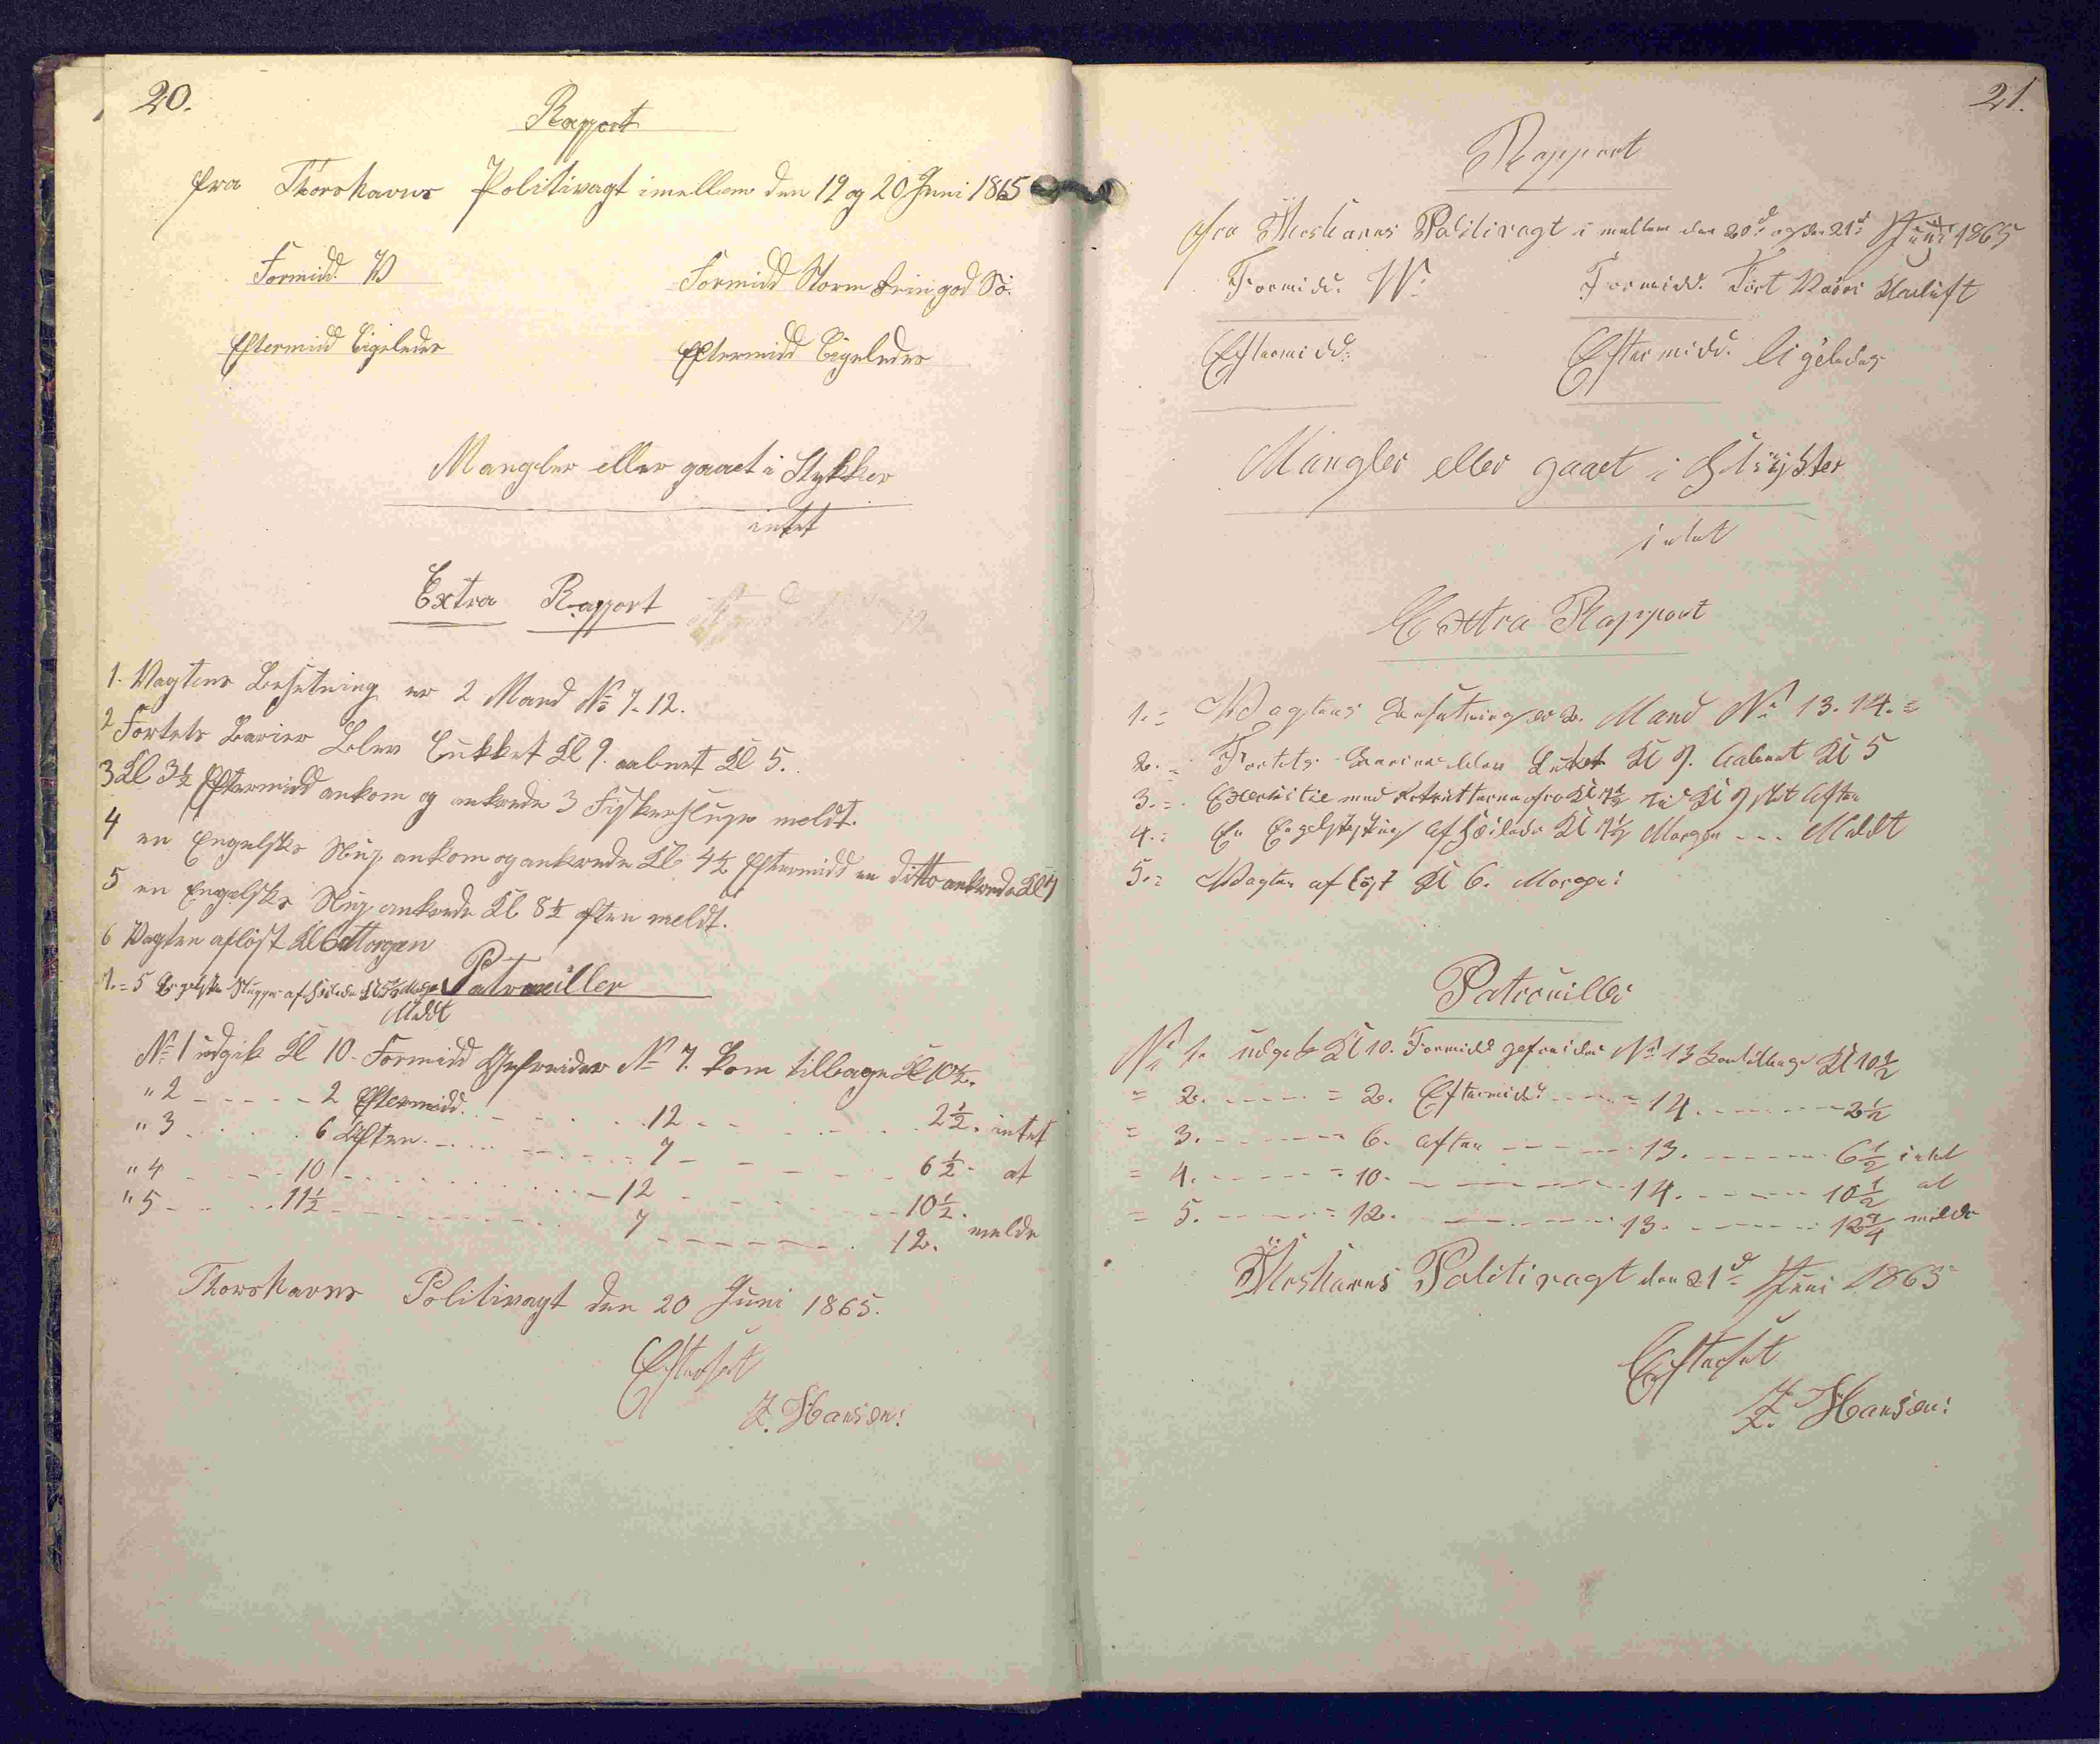 20.
Rapport
fra Thorshavns Politivagt imellem den 19 og 20 Juni 1865
Formidd. W
Formidd Storm Feiu god Sö.
Eftermidd ligeledes
Eftermidd ligeledes
Mangler eller gaaet i Stykker
intet
Extra Rapport
1. Vagtens Besetning er 2 Mand No 7. 12.
2 Fortets Barier blev lukket Kl 9. aabnet Kl 5.
3 Kl 3½ Eftermidd ankom og ankrede 3 Fiskerslupe meldt.
4 en Engelsk Slup ankom og ankrede Kl. 4½ Eftermidd en ditto ankrede Kl 7
5 en Engelsk Slup ankrede Kl 8½ aften meldt.
6 Vagten aflöst Kl 6 Morgen
7.= 5 Engelske Slupper afseilede Kl 5½ Morgen
Meldt
Patrouiller
No 1 udgik Kl 10. Formidd Gefreider No 7. kom tilbage Kl 10½.
" 2 - - - - - 2 Eftermidd. - - - - 12 - - - - - - 2½. intet
" 3 - - - - 6 Aften - - - - - - 7 - - - - - 6½. at
" 4 - - - - 10 - - - - - - - - 12 - - - - - - 10½.
" 5 - - - 11½ - - - - - - - - 7 - - - - - - 12. melde
Thorshavns Politivagt den 20 Juni 1865.
Efterset
Z. Hansen:
21.
Rapport
fra Thorshavns Politivagt i mellem den 20d og den 21d Juni 1865
Formidd. W.
Formidd. Tört Klarluft
Eftermidd:
Eftermidd. ligeledes
Mangler eller gaaet i Stÿkker
intet
Extra Rapport
1.= Vagtens Besætning er 2. Mand No 13. 14.=
2.= Fortets Barier blev Luket Kl 9. Aabnet Kl 5
3.= Exersitie med Rekrutterne fra Kl 7½ til Kl 9 slet Aften
4.= En Engelsk Slup afseilede Kl 4½ Morgen - - - Meldt
5.= Vagten aflöst Kl 6. Morgen:
Patrouiller
No 1. udgik Kl 10. Formidd gefreider No 13 kom tilbage Kl 10½
= 2. - - - - = 2. Eftermidd. - - - - 14. - - - - - 2½
= 3. - - - - - 6. aften - - - - - 13. - - - - - 6½ intet
= 4. - - - - - 10. - - - - - - - 14. - - - - - 10½ at
= 5. - - - - = 12. - - - - - - - 13. - - - - - 12¾ melde
Thorshavns Politivagt den 21d Juni 1865
Efterset
Z. Hansen: